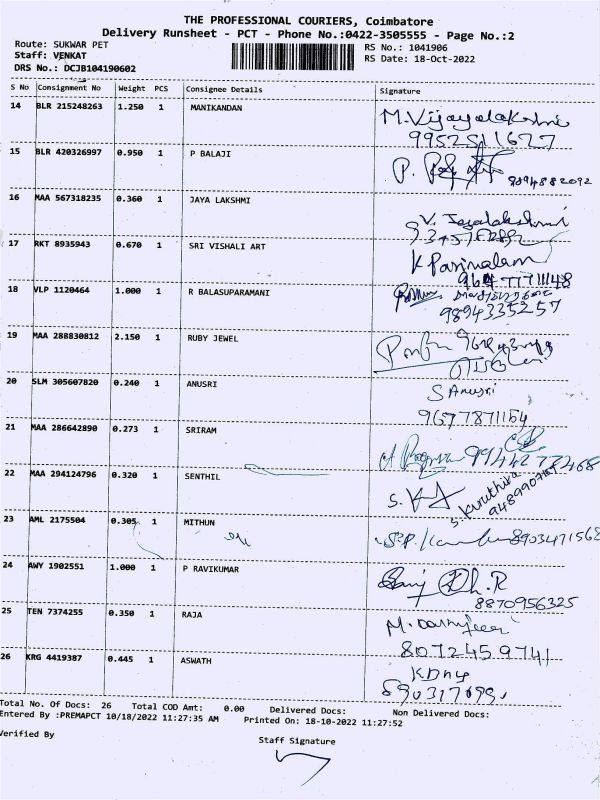 THE PROFESSIONAL COURIERS, Coimbatore
Delivery Runsheet - PCT - Phone No.:0422-3505555 - Page No.:2
Route: SUKWAR PET RS No.: 1041906
Staff: VENKAT RS Date: 18-Oct-2022
DRS No.: DCJB104190602
S No Consignment No Weight PCS Consignee Details Signature
14 BLR 215248263 1.250 1 MANIKANDAN M.Vijayalakshmi
9952511627
15 BLR 420326997 0.950 1 P BALAJI P.
9894882092
16 MAA 567318235 0.360 1 JAYA LAKSHMI
V. Jayalakshmi
17 RKT 8935943 0.670 1 SRI VISHALI ART
K Parimalam
18 VLP 1120464 1.000 1 R BALASUPARAMANI
9894335257
19 MAA 288830812 2.150 1 RUBY JEWEL
20 SLM 305607820 0.240 1 ANUSRI S Anusri
21 MAA 286642890 0.273 1 SRIRAM
22 MAA 294124796 0.320 1 SENTHIL S. Kruthika
23 AML 2175504 0.305 1 MITHUN 8903471568
24 AWY 1902551 1.000 1 P RAVIKUMAR
8870956325
25 TEN 7374255 0.350 1 RAJA
8072459741
26 KRG 4419387 0.445 1 ASWATH
Total No. Of Docs: 26 Total COD Amt: 0.00 Delivered Docs: Non Delivered Docs:
Entered By :PREMAPCT 10/18/2022 11:27:35 AM Printed On: 18-10-2022 11:27:52
Verified By
Staff Signature